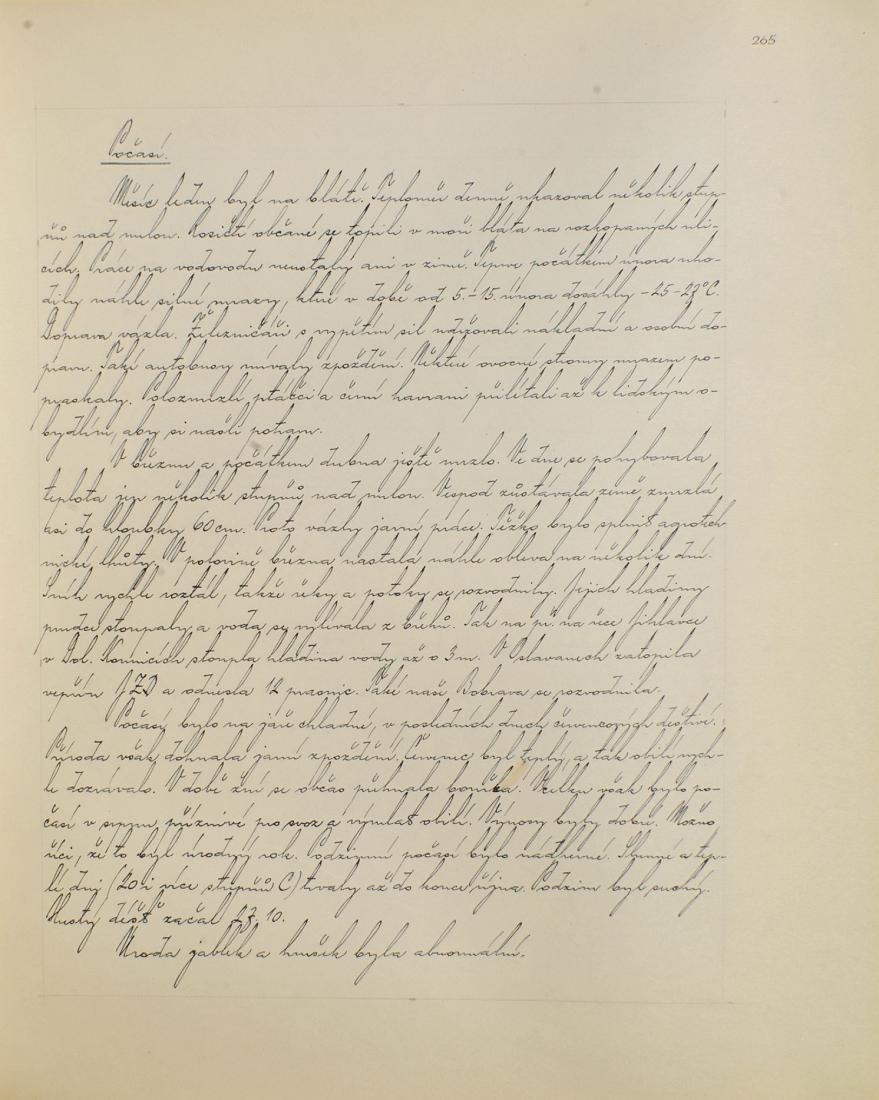 265
Počasí.
Měsíc leden byl na blátě. Teploměr denně ukazoval několik stup-
ňů nad nulou. Rosičtí občané se topili v moři bláta na rozkopaných uli-
cích. Práce na vodovodu neustaly ani v zimě. Teprve počátkem února uho-
dily náhle silné mrazy, které v době od 5.-15. února dosáhly -25-27°C.
Doprava vázla. Železničáři s vypětím sil udržovali nákladní a osobní do-
pravu. Také autobusy mívaly zpoždění. Některé ovocné stromy mrazem po-
praskaly. Polozmrzlí ptáčci a černí havrani přilétali až k lidským o-
bydlím, aby si našli potravu.
V březnu a počátkem dubna ještě mrzlo. Ve dne se pohybovala
teplota jen několik stupňů nad nulou. Vespod zůstávala země zmrzlá
asi do hloubky 60 cm. Proto vázly jarní práce. Těžko bylo splnit agrotech-
nické lhůty. V polovině března nastala náhle obleva na několik dní.
Sníh rychle roztál, takže řeky a potoky se rozvodnily. Jejich hladiny
prudce stoupaly a voda se vylévala z břehů. Tak na př. na řece Jihlavce
v Dol. Kounicích stoupla hladina vody až o 3 m. V Oslavanech zatopila
vepřín JZD a odnesla 12 prasnic. Také naše Bobrava se rozvodnila.
Počasí bylo na jaře chladné, v posledních dnech červencových deštivé.
Příroda však dohnala jarní zpoždění. Červenec byl teplý, a tak obilí rych-
le dozrávalo. V době žní se občas přehnala bouřka. Vcelku však bylo po-
časí v srpnu příznivé pro svoz a výmlat obilí. Výnosy byly dobré. Možno
říci, že to byl úrodný rok. Podzimní počasí bylo nádherné. Slunné a tep-
lé dny (20 i více stupňů C) trvaly až do konce října. Podzim byl suchý.
Hustý déšť začal 27. 10.
Úroda jablek a hrušek byla abnormální.